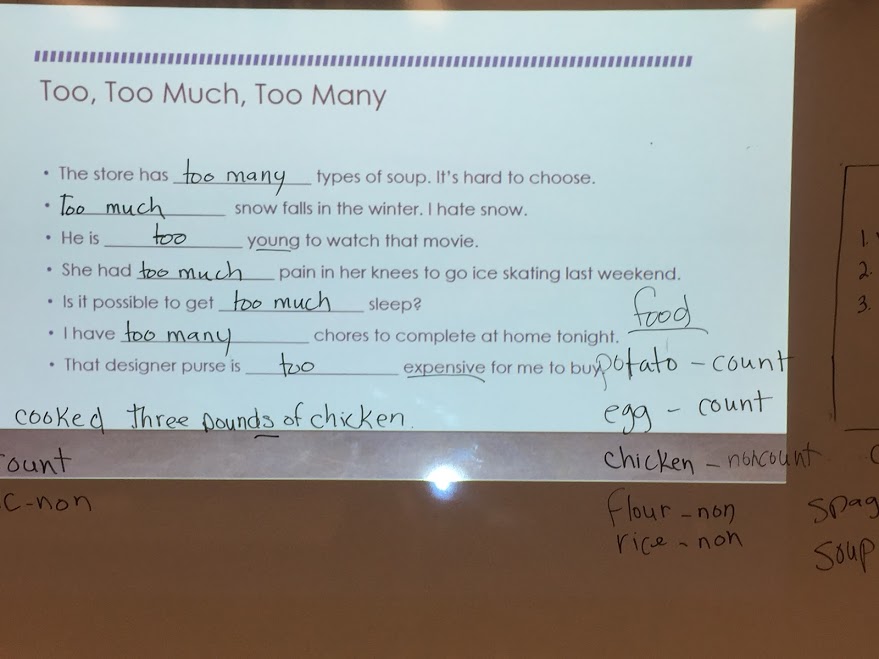 Too, Too Much, Too Many
• The store has too many types of soup. It's hard to choose.
• Too much snow falls in the winter. I hate snow.
• He is too young to watch that movie.
• She had too much pain in her knees to go ice skating last weekend.
• Is it possible to get too much sleep?
• I have too many chores to complete at home tonight.
• That designer purse is too expensive for me to buy
cooked three pounds of chicken.
ount
C-non
food
potato - count
egg - count
chicken - noncount
flour - non
rice - non
1.
2.
3.
spag
soup